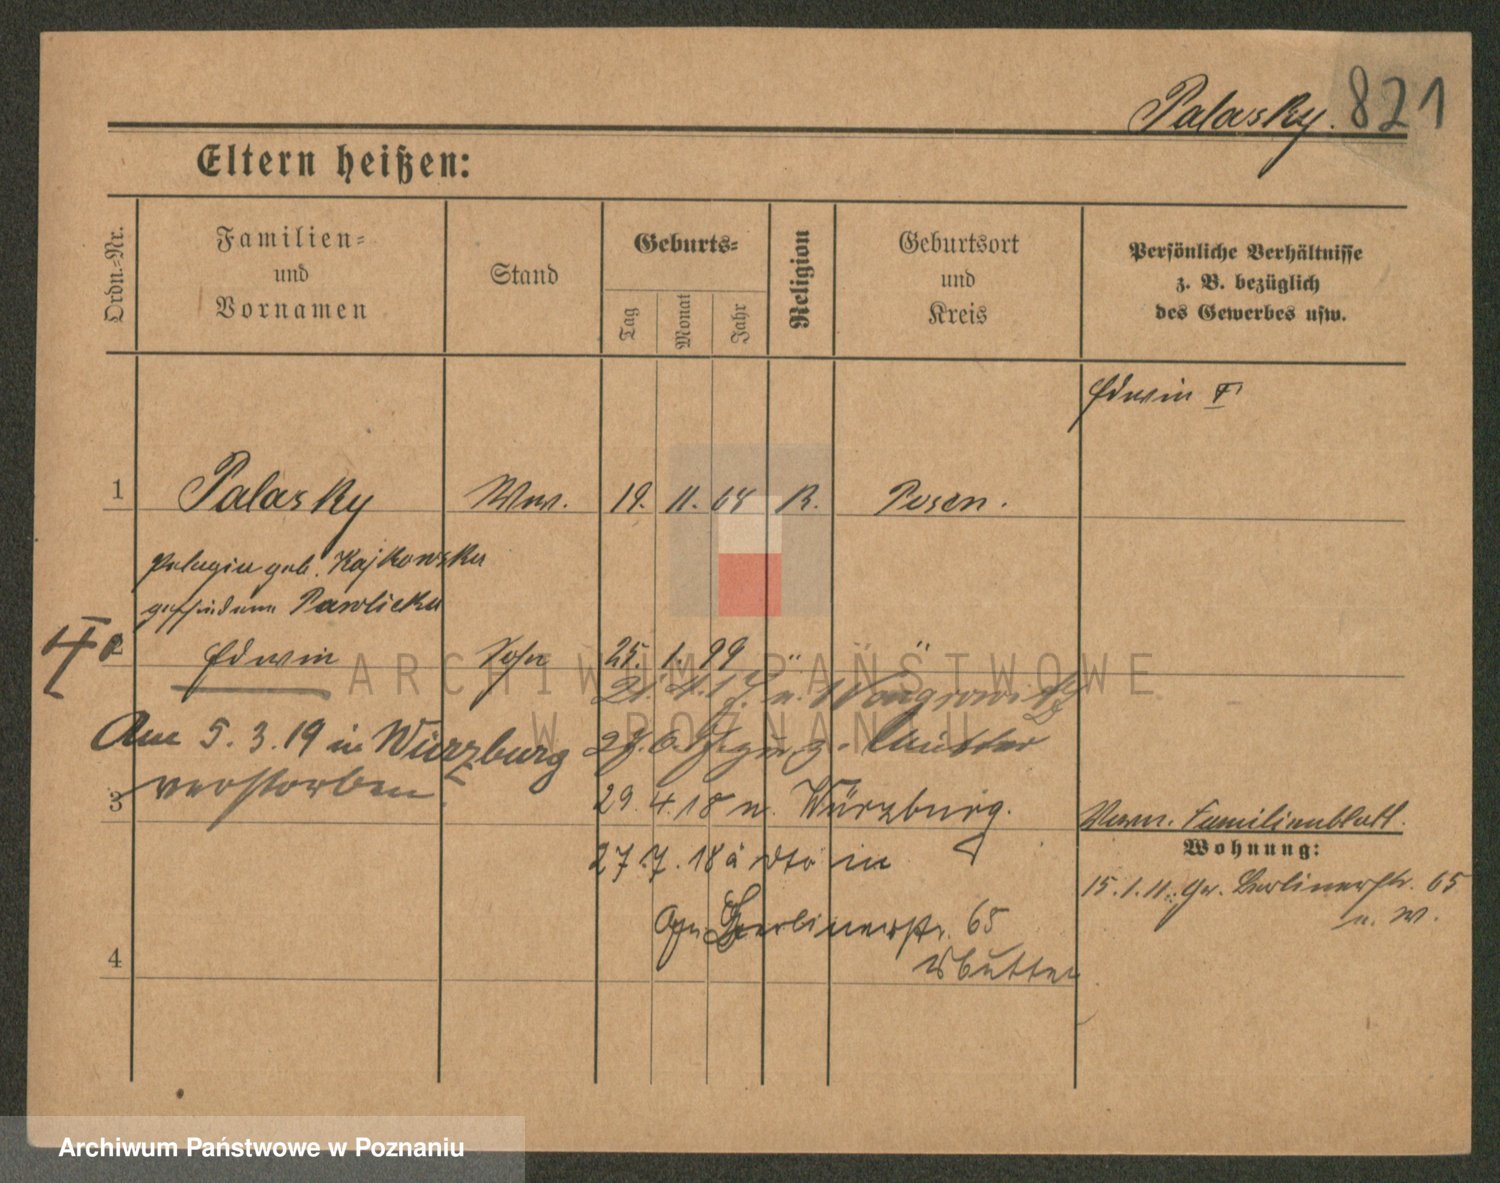 Palasky. 821
Eltern heißen:
Ordn.-Nr.
Familien-
und
Vornamen
Stand
Geburts-
Tag
Monat
Jahr
Religion
Geburtsort
und
Kreis
Persönliche Verhältnisse
z. B. bezüglich
des Gewerbes usw.
Edwin
1 Palasky Ww. 19. 11. 64 K. Posen.
Pelagia geb. Kajkowska
geschiedene Pawlicka
2 Edwin Sohn 25. 1. 99 " "
n. Wongrowitz
Am 5. 3. 19 in Würzburg
verstorben.
zur Mutter
3
29. 4. 18 n. Würzburg.
27. 7. 18 a dto in
Berlinerstr. 65
Mutter
4
Verm. Familienblatt.
Wohnung:
15. 1. 11. Gr. Berlinerstr. 65
n. W.
ARCHIWUM PAŃSTWOWE
W POZNANIU
Archiwum Państwowe w Poznaniu